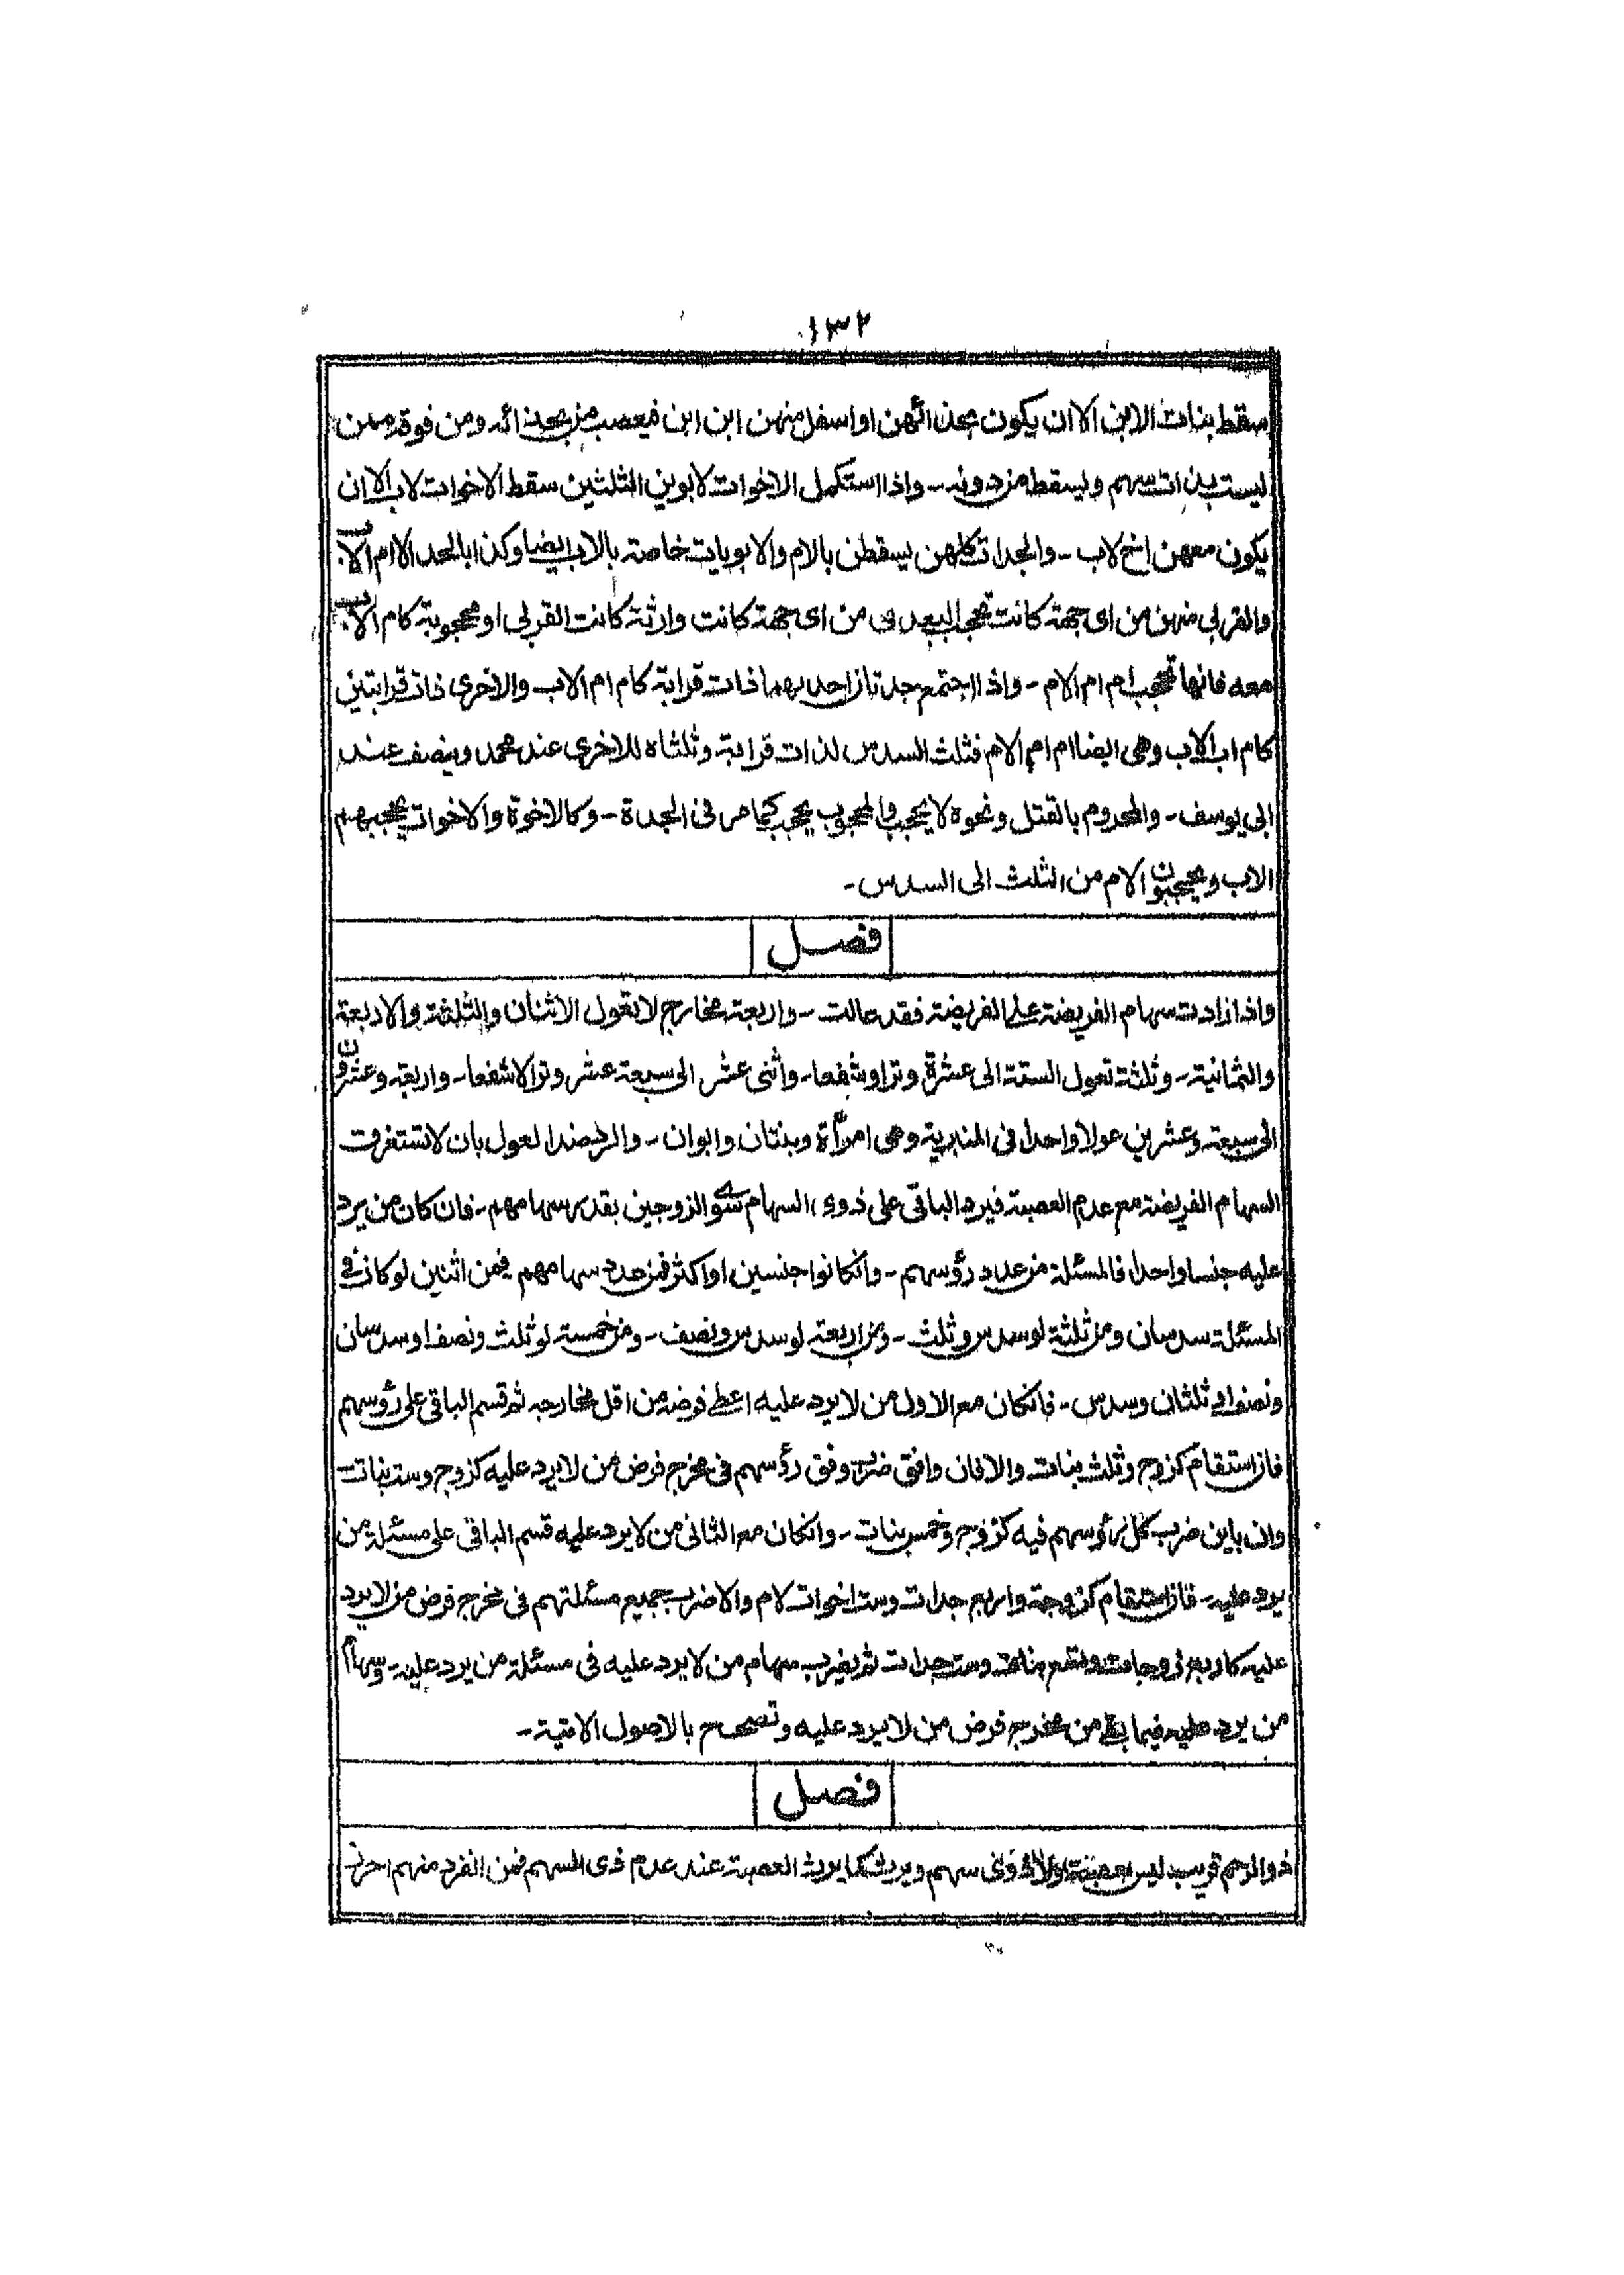 ١٣٢
سقط بنات الابن الا ان يكون بحذائهن او اسفل منهن ابن ابن فيعصب من بحذائه ومن فوقه ممن
ليست بذات سهم ويسقط من دونه - واذا استكمل الاخوات لابوين الثلثين سقط الاخوات لاب الا ان
يكون معهن اخ لاب - والجدات كلهن يسقطن بالام والابويات خاصة بالاب ايضا وكذا بالجد الا ام الاب
والقربى منهن من اى جهة كانت تحجب البعدى من اى جهة كانت وارثة كانت القربى او محجوبة كام الاب
معه فانها تحجب ام ام الام - واذا اجتمع جدتان احدهما ذات قرابة كام ام الاب والاخرى ذات قرابتين
كام اب الاب وهى ايضا ام ام الام فثلث السدس لذات قرابة وثلثاه للاخرى عند محمد وينصف عند
ابى يوسف - والمحروم بالقتل ونحوه لا يحجب والمحجوب يحجب كما مر فى الجدة - وكالاخوة والاخوات يحجبهم
الاب ويحجبون الام من الثلث الى السدس -
فصل
واذا زادت سهام الفريضة على الفريضة فقد عالت - واربعة مخارج لا تعول الاثنان والثلثة والاربعة
والثمانية - وثلثة تعول الستة الى عشرة وترا وشفعا - واثنى عشر الى سبعة عشر وترا لا شفعا - واربعة وعشرون
الى سبعة وعشرين عولا واحدا فى المنبرية وهى امرأة وبنتان وابوان - والرد ضد العول بان لا تستغرقت
السهام الفريضة مع عدم العصبة فيرد الباقى على ذوى السهام سوى الزوجين بقدر سهامهم - فان كان من يرد
عليه جنسا واحدا فالمسئلة من عداد رؤسهم - وانكانوا جنسين او اكثر فمن عدد سهامهم فمن اثنين لو كان فى
المسئلة سدسان ومن ثلثة لو سدس وثلث - ومن اربعة لو سدس ونصف - ومن خمسة لو ثلث ونصف او سدسان
ونصف او ثلثان وسدس - فانكان مع الاول من لا يرد عليه اعطى فرضه من اقل مخارجه ثم قسم الباقى على رؤسهم
فان استقام كزوج وثلث بنات والا فان وافق ضرب وفق رؤسهم فى مخرج فرض من لا يرد عليه كزوج وست بنات
وان باين ضرب كل رؤسهم فيه كزوج وخمس بنات - وانكان مع الثانى من لا يرد عليه قسم الباقى على مسئلة من
يرد عليه - فان استقام كزوجة واربع جدات وست اخوات لام والا ضرب جميع مسئلتهم فى مخرج فرض من لا يرد
عليه كاربع زوجات وتسع بنات وست جدات ثم يضرب سهام من لا يرد عليه فى مسئلة من يرد عليه - وسهام
من يرد عليه فيما بقى من مخرج فرض من لا يرد عليه وتصحح بالاصول الاتية -
فصل
ذو الرحم قريب ليس بعصبة ولا ذوى سهم ويرث كما يرث العصبة عند عدم ذى السهم فمن انفرد منهم احرز